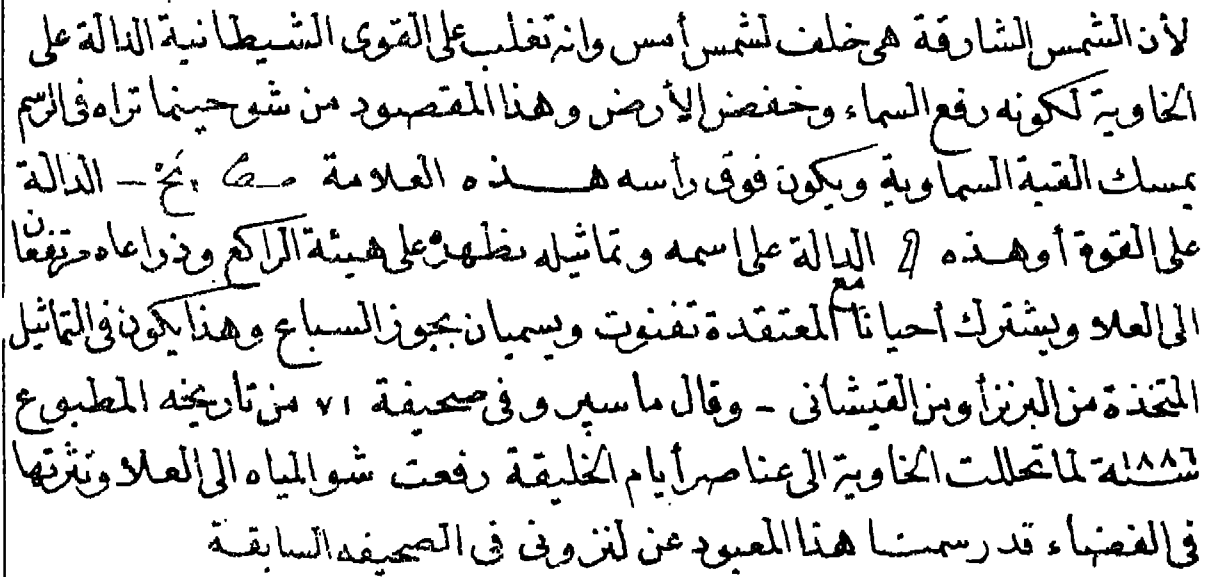 لأن الشمس الشارقة هى خلف لشمس أمس وانه تغلب على القوى الشيطانية الدالة على
الخاوية لكونه رفع السماء وخفض الأرض وهذا المقصود من شو حينما تراه فى الرسم
يمسك القبة السماوية ويكون فوق رأسه هـذه العلامة نخ - الدالة
على القوة أو هـذه الدالة على اسمه وتماثيله تظهره على هيئة الراكع وذراعاه مرتفعان
الى العلا ويشترك أحيانا مع المعتقدة تفنوت ويسميان بجوز السباع وهذا يكون فى التماثيل
المتخذة من البرنز أو من القيشانى - وقال ماسپرو فى صحيفة ٧١ من تاريخه المطبوع
سنة ١٨٨٦ لما تحللت الخاوية الى عناصر أيام الخليقة رفعت شو المياه الى العلا ونثرتها
فى الفضاء قد رسمنا هذا المعبود عن لنزونى فى الصحيفه السابقة